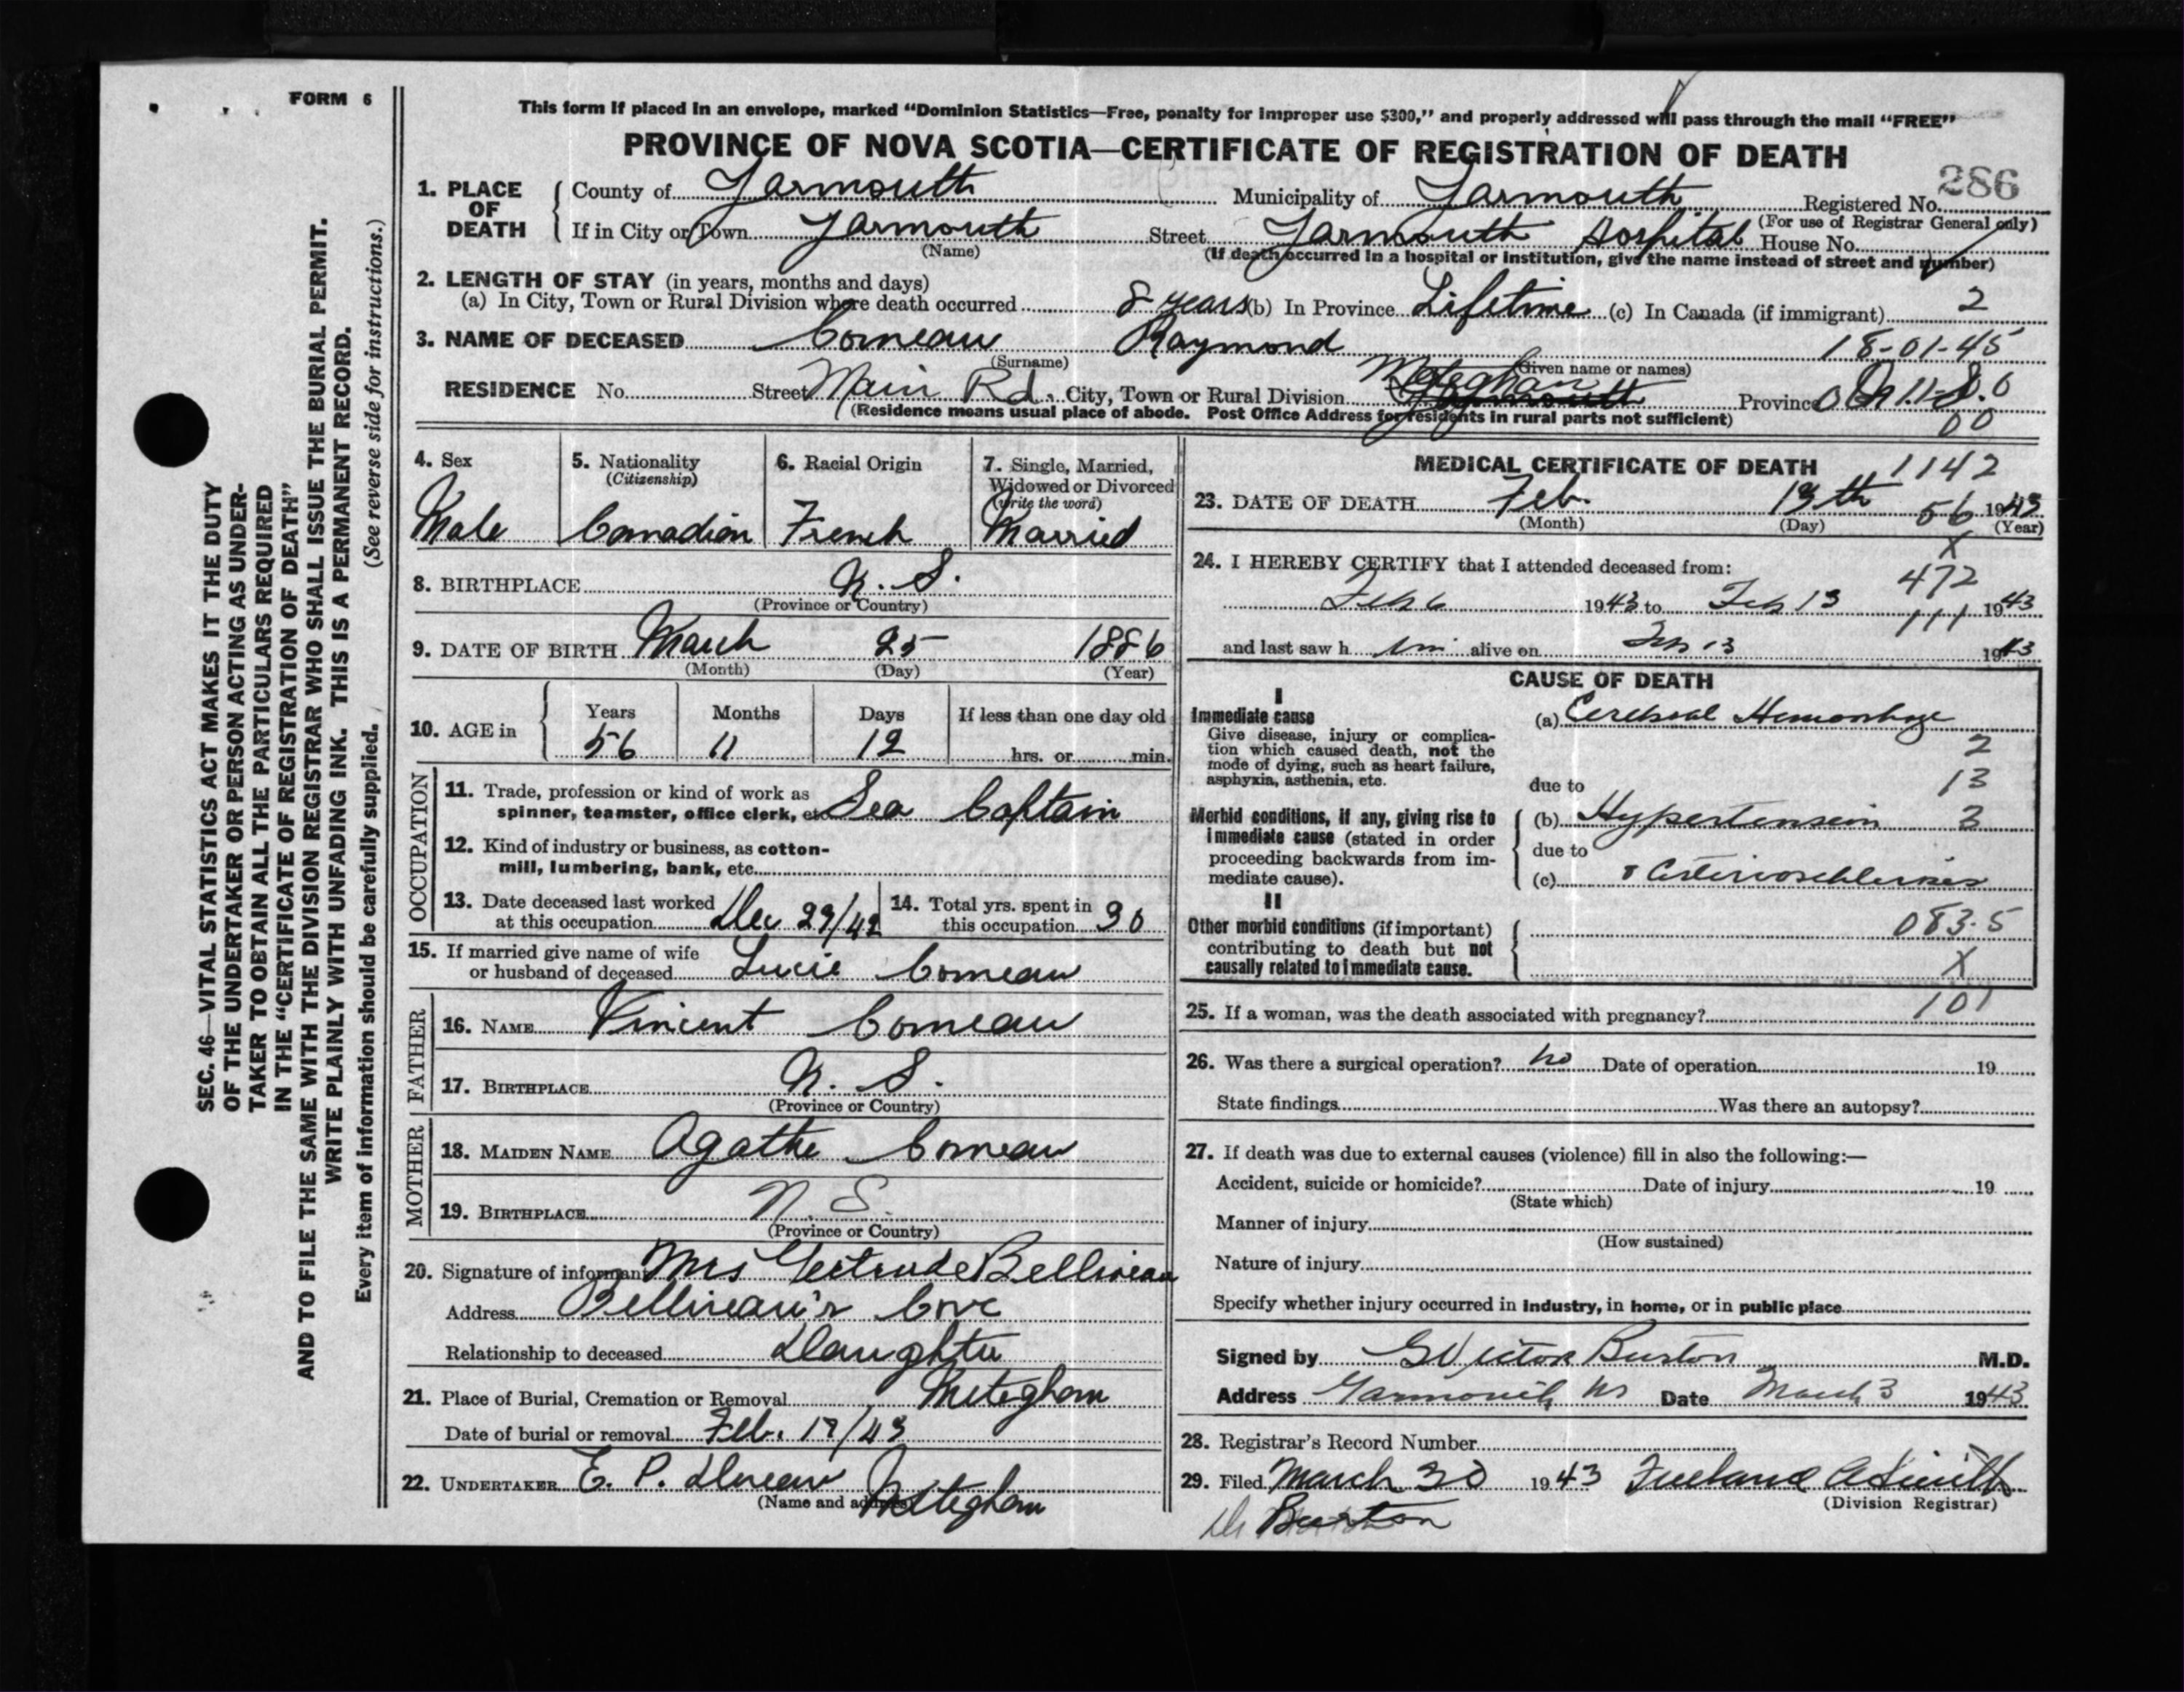 FORM 6
This form if placed in an envelope, marked “Dominion Statistics—Free, penalty for improper use $300,” and properly addressed will pass through the mail “FREE”
PROVINCE OF NOVA SCOTIA—CERTIFICATE OF REGISTRATION OF DEATH
286
1. PLACE OF DEATH County of Yarmouth Municipality of Yarmouth Registered No.
(For use of Registrar General only)
If in City or Town Yarmouth Street Yarmouth Hospital House No.
(Name) (If death occurred in a hospital or institution, give the name instead of street and number)
2. LENGTH OF STAY (in years, months and days)
(a) In City, Town or Rural Division where death occurred 8 years (b) In Province Lifetime (c) In Canada (if immigrant) 2
3. NAME OF DECEASED Comeau Raymond 18-01-45
(Surname) (Given name or names)
RESIDENCE No. Street Main Rd. City, Town or Rural Division Meteghan Yarmouth Province
(Residence means usual place of abode. Post Office Address for residents in rural parts not sufficient) 00
4. Sex Male
5. Nationality (Citizenship) Canadian
6. Racial Origin French
7. Single, Married, Widowed or Divorced (write the word) Married
8. BIRTHPLACE N. S.
(Province or Country)
9. DATE OF BIRTH March 25 1886
(Month) (Day) (Year)
10. AGE in Years Months Days If less than one day old
56 11 12 hrs. or min.
OCCUPATION
11. Trade, profession or kind of work as
spinner, teamster, office clerk, etc. Sea Captain
12. Kind of industry or business, as cotton-
mill, lumbering, bank, etc.
13. Date deceased last worked
at this occupation Dec 29/42
14. Total yrs. spent in
this occupation 30
15. If married give name of wife
or husband of deceased Lucie Comeau
FATHER
16. NAME Vincent Comeau
17. BIRTHPLACE N. S.
(Province or Country)
MOTHER
18. MAIDEN NAME Agathe Comeau
19. BIRTHPLACE N. S.
(Province or Country)
20. Signature of informant Mrs Gertrude Belliveau
Address Belliveau's Cove
Relationship to deceased Daughter
21. Place of Burial, Cremation or Removal Meteghan
Date of burial or removal Feb. 17/43
22. UNDERTAKER E. P. Meteghan
(Name and address)
MEDICAL CERTIFICATE OF DEATH 1142
23. DATE OF DEATH Feb. 13th 1943
(Month) (Day) (Year)
56
X
24. I HEREBY CERTIFY that I attended deceased from:
472
Feb 6 1943 to Feb 13 1943
111
and last saw h im alive on Feb 13 1943
CAUSE OF DEATH
I
Immediate cause
Give disease, injury or complica-
tion which caused death, not the
mode of dying, such as heart failure,
asphyxia, asthenia, etc.
(a) Cerebral Hemorrhage
2
due to 13
Morbid conditions, if any, giving rise to
immediate cause (stated in order
proceeding backwards from im-
mediate cause).
(b) Hypertension 3
due to
(c) & Arteriosclerosis
II
Other morbid conditions (if important)
contributing to death but not
causally related to immediate cause.
083.5
X
101
25. If a woman, was the death associated with pregnancy?
26. Was there a surgical operation? no Date of operation 19
State findings Was there an autopsy?
27. If death was due to external causes (violence) fill in also the following:—
Accident, suicide or homicide? Date of injury 19
(State which)
Manner of injury
(How sustained)
Nature of injury
Specify whether injury occurred in industry, in home, or in public place
Signed by G Victor Burton M.D.
Address Yarmouth NS Date March 3 1943
28. Registrar's Record Number
29. Filed March 30 1943 Freeland A Smith
(Division Registrar)
Dr Burton
SEC. 46—VITAL STATISTICS ACT MAKES IT THE DUTY
OF THE UNDERTAKER OR PERSON ACTING AS UNDER-
TAKER TO OBTAIN ALL THE PARTICULARS REQUIRED
IN THE “CERTIFICATE OF REGISTRATION OF DEATH”
AND TO FILE THE SAME WITH THE DIVISION REGISTRAR WHO SHALL ISSUE THE BURIAL PERMIT.
WRITE PLAINLY WITH UNFADING INK. THIS IS A PERMANENT RECORD.
Every item of information should be carefully supplied. (See reverse side for instructions.)